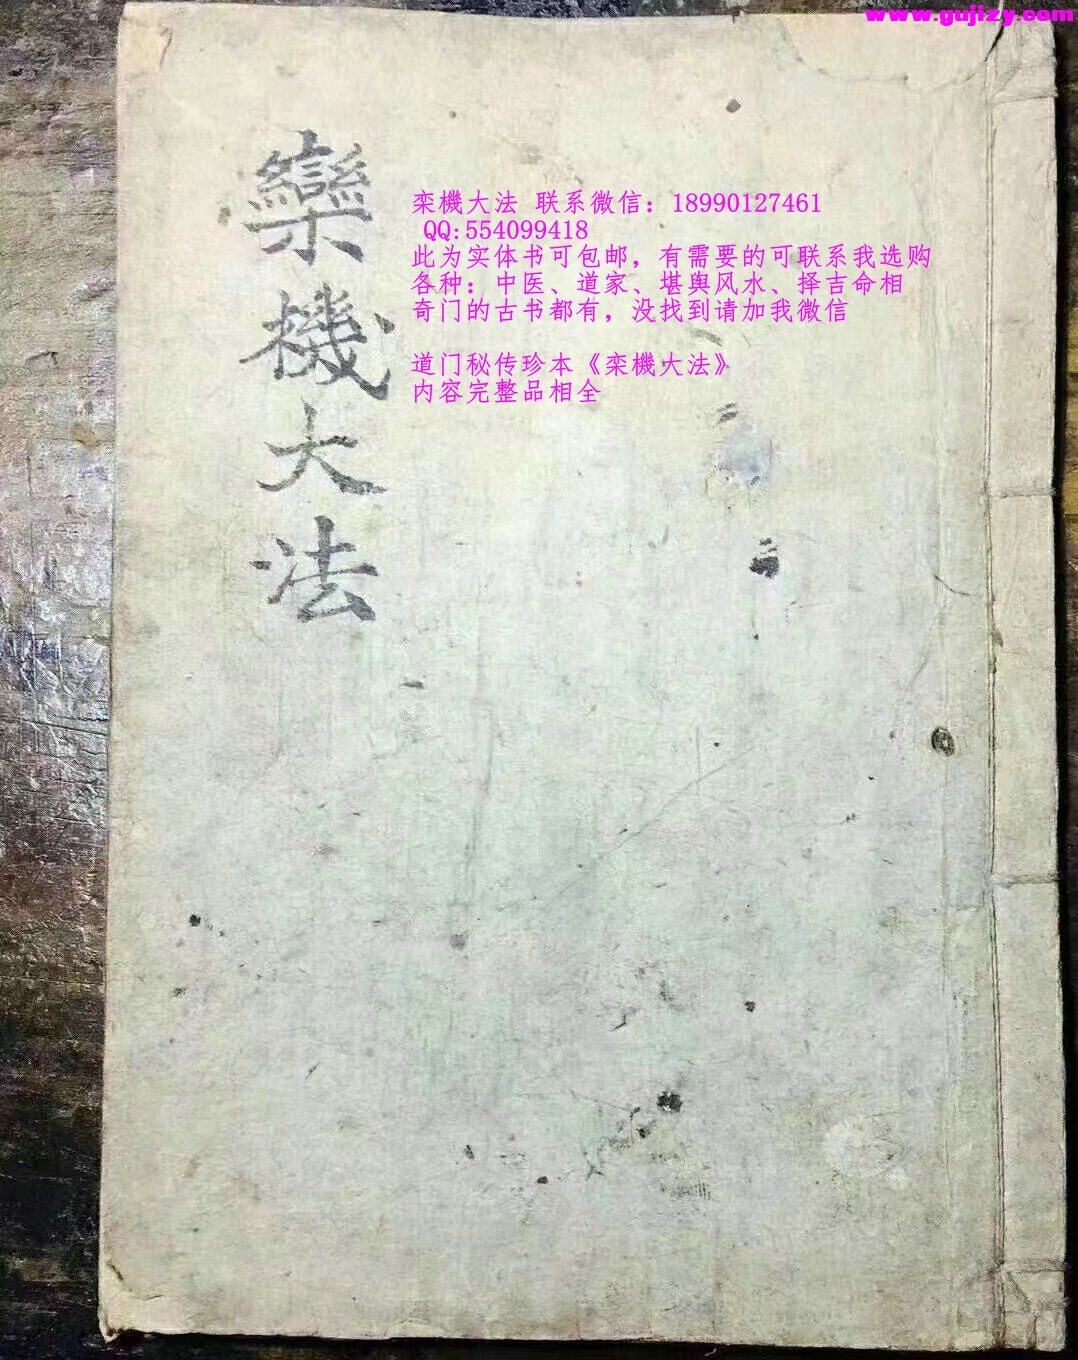 www.gujizy.com
欒機大法
栾機大法 联系微信：18990127461
QQ:554099418
此为实体书可包邮，有需要的可联系我选购
各种：中医、道家、堪舆风水、择吉命相
奇门的古书都有，没找到请加我微信
道门秘传珍本《栾機大法》
内容完整品相全